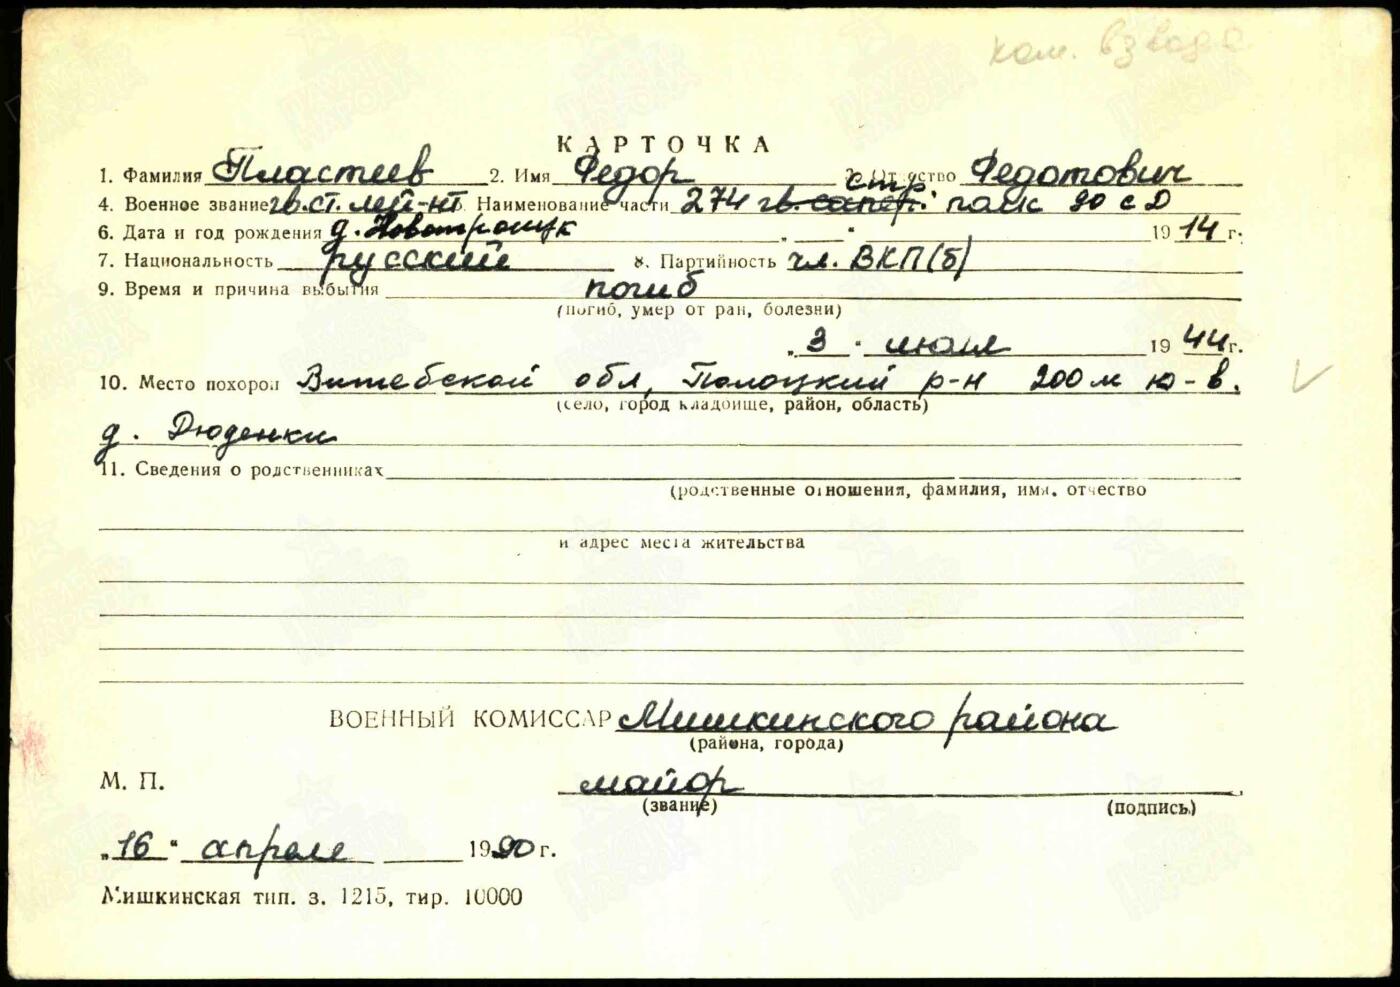 ком. взвода
КАРТОЧКА
1. Фамилия Пластеев 2. Имя Федор 3. Отчество Федотович
4. Военное звание гв.ст.лей-нт 5. Наименование части 274 гв. сапер. стр. полк 90 сД
6. Дата и год рождения д. Новотроицк " " 1914 г.
7. Национальность русский 8. Партийность чл. ВКП(б)
9. Время и причина выбытия погиб
(погиб, умер от ран, болезни)
„3" июля 1944 г.
10. Место похорон Витебской обл, Полоцкий р-н 200м ю-в.
(село, город кладбище, район, область)
д. Дюденки
11. Сведения о родственниках
(родственные отношения, фамилия, имя, отчество
и адрес места жительства
ВОЕННЫЙ КОМИССАР Мишкинского района
(района, города)
М. П. майор
(звание) (подпись)
„16" апреля 1990 г.
Мишкинская тип. з. 1215, тир. 10000